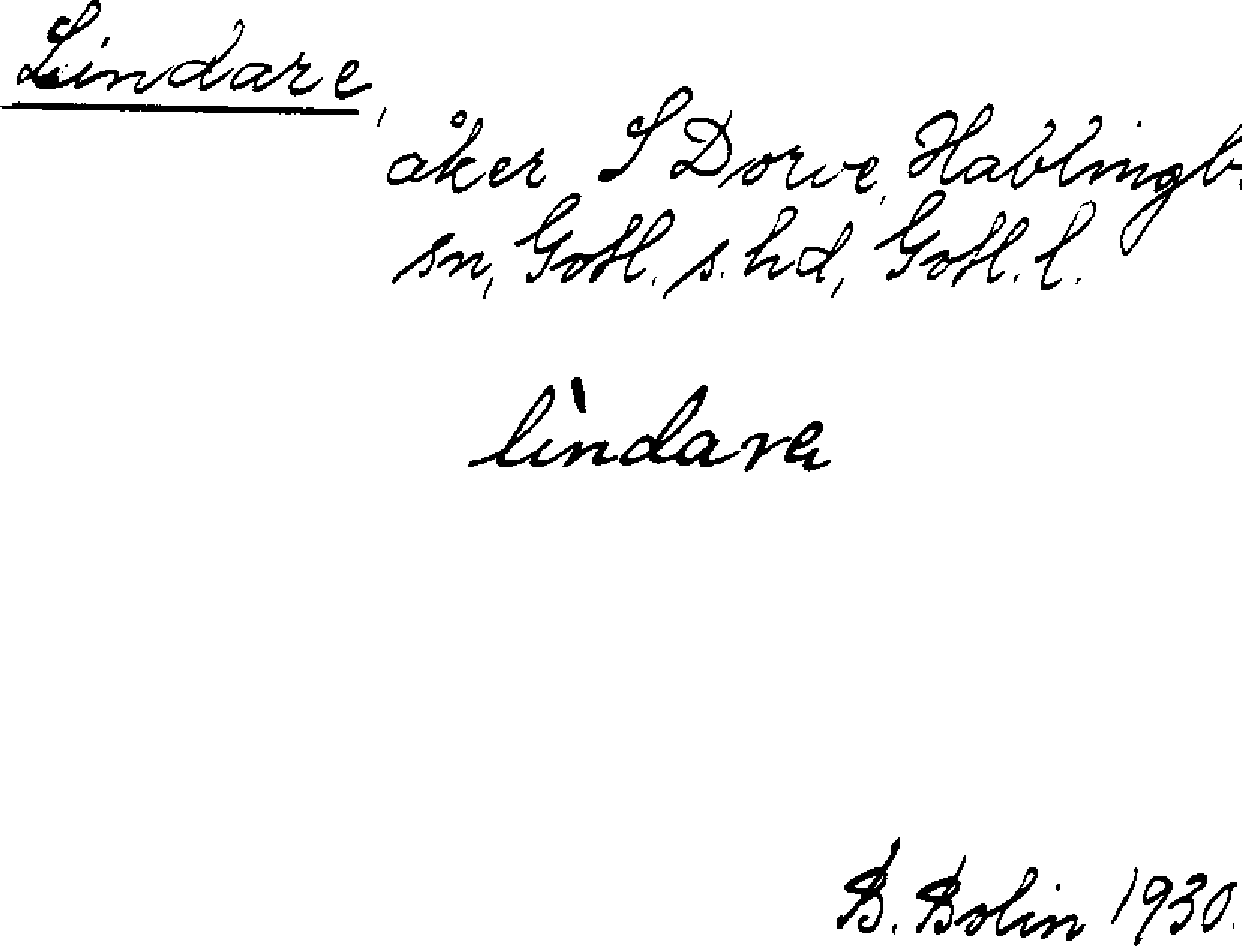 Lindare,
åker S Dorve, Hablingb.
sn, Gotl. s. hd, Gotl. l.
lìndara
B. Bolin 1930.